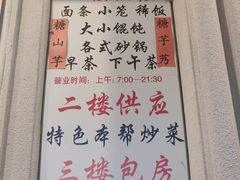 面条 小笼 稀饭
大小馄饨
各式砂锅
早茶 下午茶
糖山芋
糖芋艿
营业时间：上午：7:00—21:30
二楼供应
特色本帮炒菜
三楼包房